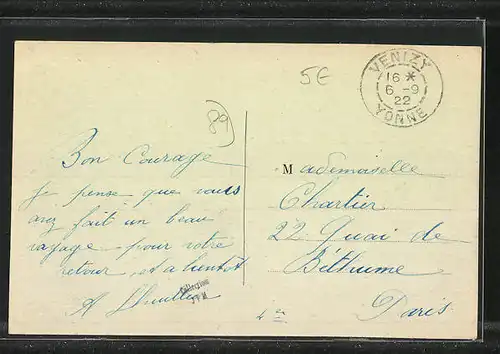 5€
VENIZY
16 *
6 - 9
22
YONNE
89
Bon Courage
je pense que vous
avez fait un beau
voyage pour votre
retour, et a bientot
A Lhuillier
Mademoiselle
Chartier
22 Quai de
Béthume
Paris